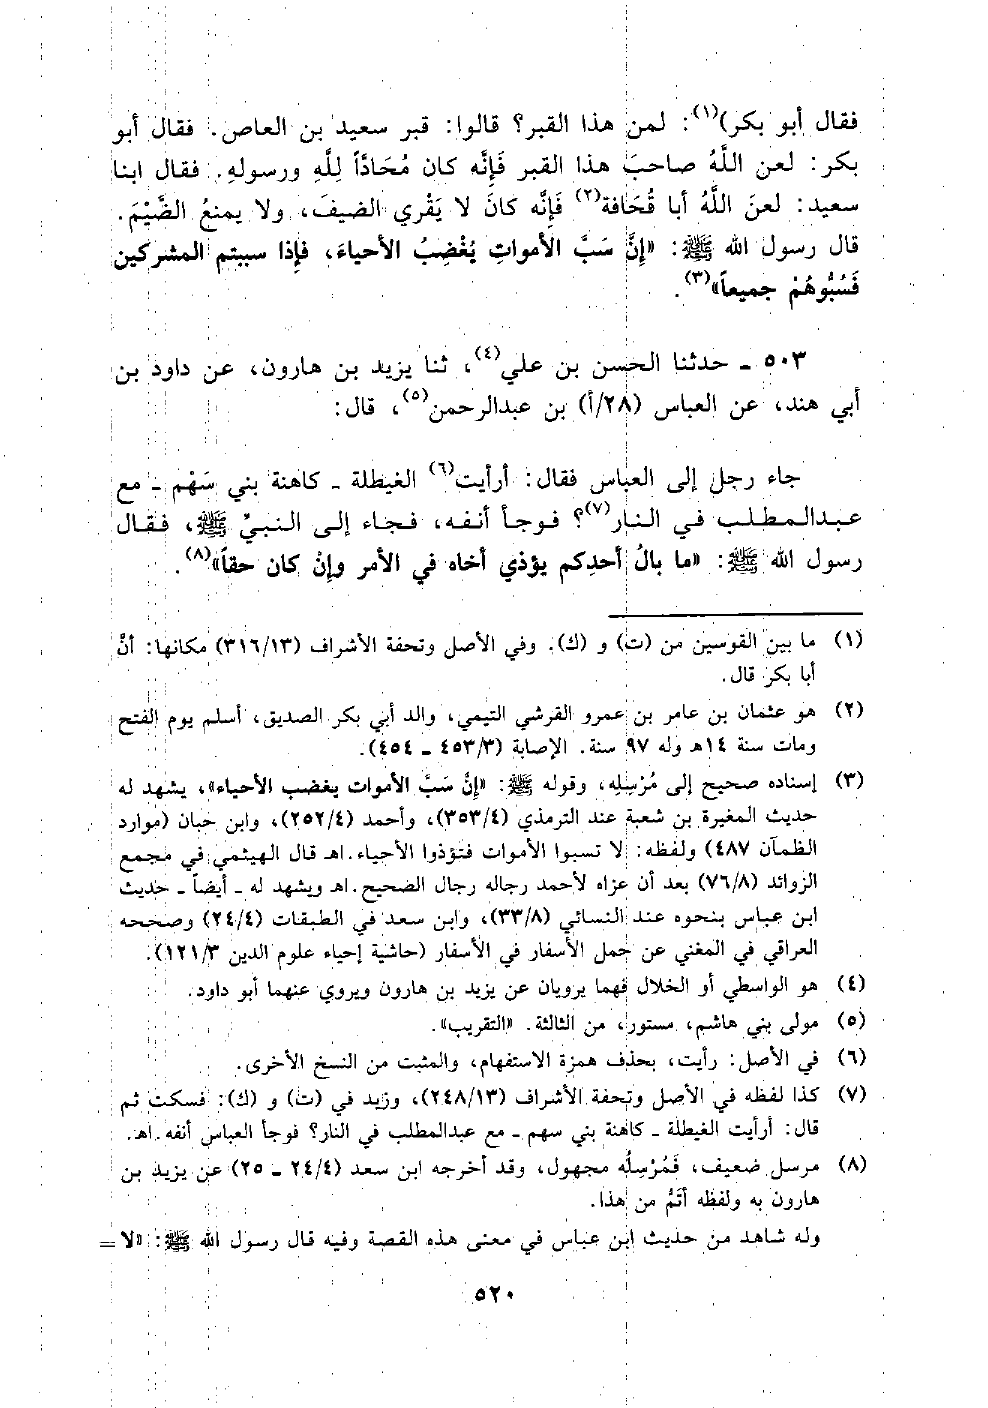 فقال أبو بكر)(١): لمن هذا القبر؟ قالوا: قبر سعيد بن العاص. فقال أبو
بكر: لعن اللَّهُ صاحبَ هذا القبر فَإِنَّه كان مُحَادّاً لِلَّهِ ورسولهِ. فقال ابنا
سعيد: لعنَ اللَّهُ أبا قُحَافة(٢) فَإِنَّه كانَ لا يَقْري الضيفَ، ولا يمنعُ الضَّيْمَ.
قال رسول الله ﷺ: «إنَّ سَبَّ الأمواتِ يُغْضِبُ الأحياءَ، فإذا سببتم المشركين
فَسُبُّوهُمْ جميعاً»(٣).
٥٠٣ ـ حدثنا الحسن بن علي(٤)، ثنا يزيد بن هارون، عن داود بن
أبي هند، عن العباس (٢٨/أ) بن عبدالرحمن(٥)، قال:
جاء رجل إلى العباس فقال: أرأيت(٦) الغيطلة ـ كاهنة بني سَهْم ـ مع
عبدالمطلب في النار(٧)؟ فوجأ أنفه، فجاء إلى النبيِّ ﷺ، فقال
رسول الله ﷺ: «ما بالُ أحدِكم يؤذي أخاه في الأمر وإنْ كان حقاً»(٨).
(١) ما بين القوسين من (ت) و (ك). وفي الأصل وتحفة الأشراف (٣١٦/١٣) مكانها: أنَّ
أبا بكر قال.
(٢) هو عثمان بن عامر بن عمرو القرشي التيمي، والد أبي بكر الصديق، أسلم يوم الفتح
ومات سنة ١٤هـ وله ٩٧ سنة. الإصابة (٤٥٣/٣ ـ ٤٥٤).
(٣) إسناده صحيح إلى مُرْسِلِه، وقوله ﷺ: «إنَّ سَبَّ الأموات يغضب الأحياء»، يشهد له
حديث المغيرة بن شعبة عند الترمذي (٣٥٣/٤)، وأحمد (٢٥٢/٤)، وابن حبان (موارد
الظمآن ٤٨٧) ولفظه: لا تسبوا الأموات فتؤذوا الأحياء.اهـ قال الهيثمي في مجمع
الزوائد (٧٦/٨) بعد أن عزاه لأحمد رجاله رجال الصحيح.اهـ ويشهد له ـ أيضاً ـ حديث
ابن عباس بنحوه عند النسائي (٣٣/٨)، وابن سعد في الطبقات (٢٤/٤) وصححه
العراقي في المغني عن حمل الأسفار في الأسفار (حاشية إحياء علوم الدين ١٢١/٣).
(٤) هو الواسطي أو الخلال فهما يرويان عن يزيد بن هارون ويروي عنهما أبو داود.
(٥) مولى بني هاشم، مستور، من الثالثة. «التقريب».
(٦) في الأصل: رأيت، بحذف همزة الاستفهام، والمثبت من النسخ الأخرى.
(٧) كذا لفظه في الأصل وتحفة الأشراف (٢٤٨/١٣)، وزيد في (ت) و (ك): فسكت ثم
قال: أرأيت الغيطلة ـ كاهنة بني سهم ـ مع عبدالمطلب في النار؟ فوجأ العباس أنفه.اهـ.
(٨) مرسل ضعيف، فَمُرْسِلُه مجهول، وقد أخرجه ابن سعد (٢٤/٤ ـ ٢٥) عن يزيد بن
هارون به ولفظه أتَمُّ من هذا.
وله شاهد من حديث ابن عباس في معنى هذه القصة وفيه قال رسول الله ﷺ: «لا =
٥٢٠